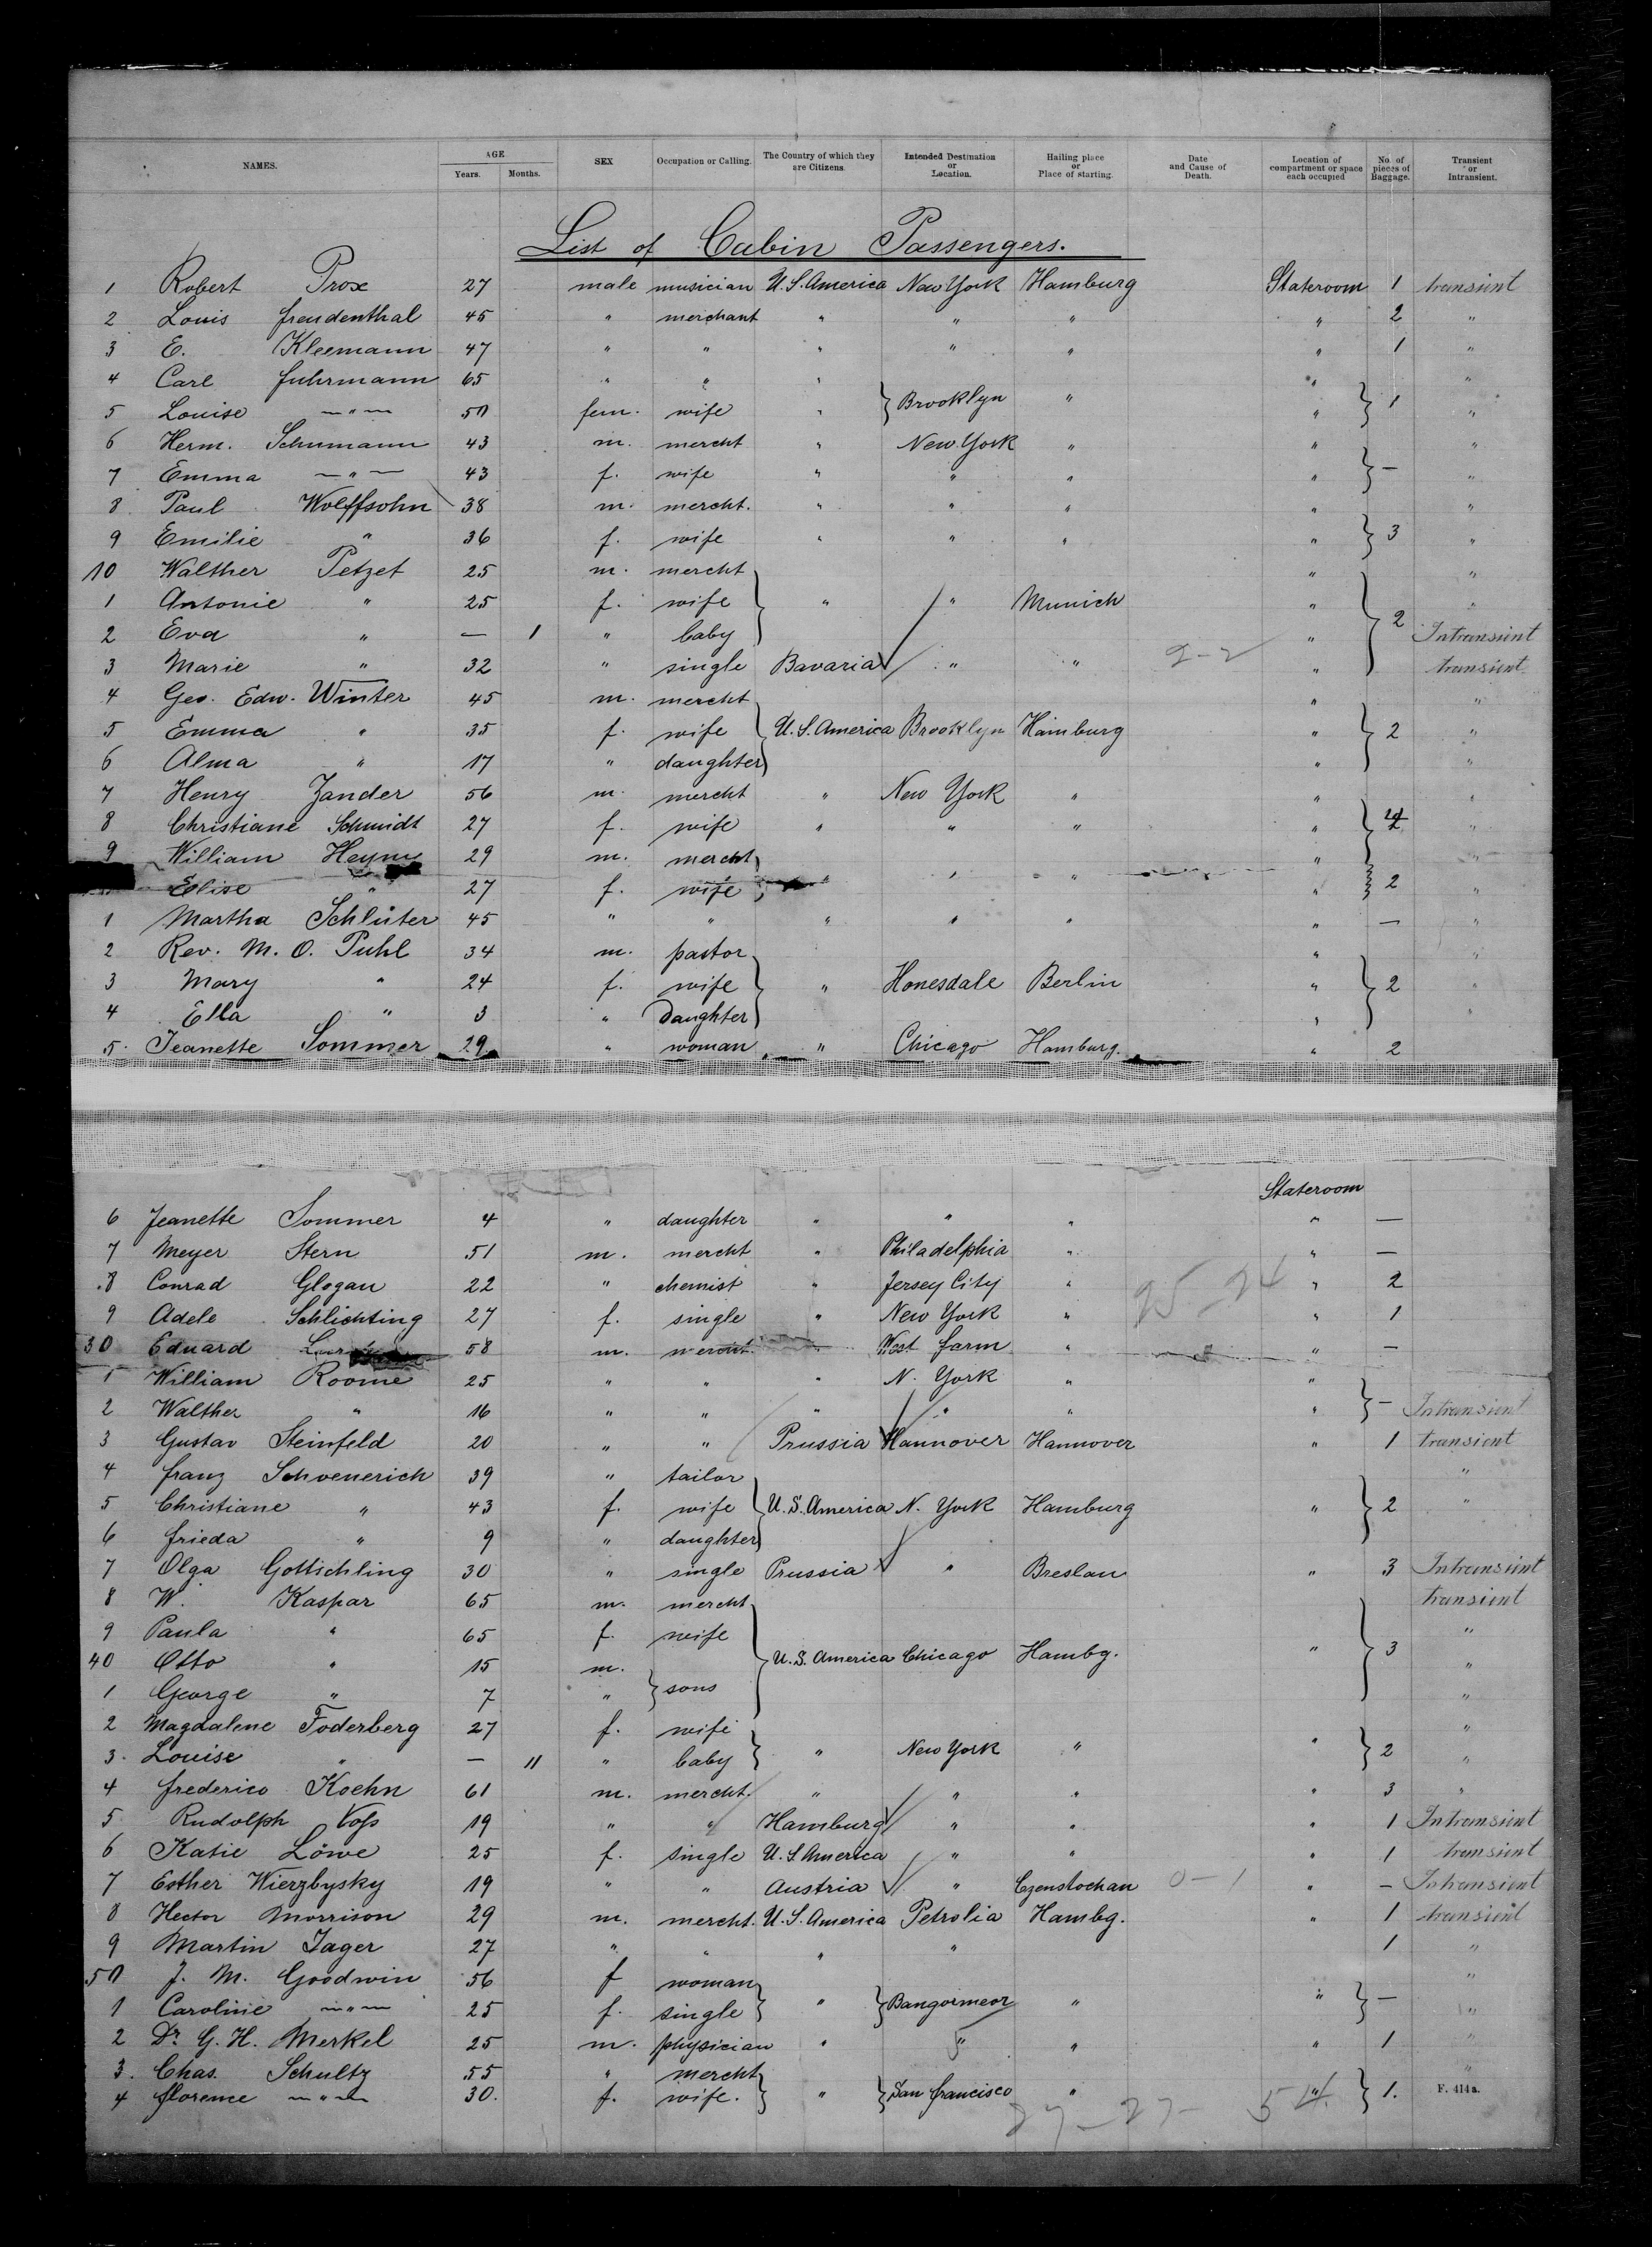 NAMES. AGE Years. Months. SEX Occupation or Calling. The Country of which they are Citizens. Intended Destination or Location. Hailing place or Place of starting. Date and Cause of Death. Location of compartment or space each occupied No. of pieces of Baggage. Transient or Intransient.
List of Cabin Passengers.
1 Robert Prox 27 male musician U.S. America New York Hamburg Stateroom 1 transient
2 Louis Freudenthal 45 " merchant " " " " 2 "
3 E. Kleemann 47 " " " " " " 1 "
4 Carl Fuhrmann 65 " " " " "
5 Louise —"— 50 fem. wife " } Brooklyn " " } 1 "
6 Herm. Schumann 43 m. mercht " New York " " "
7 Emma —"— 43 f. wife " " " " } — "
8 Paul Wolffsohn 38 m. mercht. " " " " "
9 Emilie " 36 f. wife " " " " } 3 "
10 Walther Petzet 25 m. mercht " "
1 Antonie " 25 f. wife } " " Munich " "
2 Eva " — 1 " baby " } 2 Intransient
3 Marie " 32 " single Bavaria " " 2-2 " transient
4 Geo. Edw. Winter 45 m. mercht " "
5 Emma " 35 f. wife } U.S. America Brooklyn Hamburg " } 2 "
6 Alma " 17 " daughter " "
7 Henry Zander 56 m. mercht " New York " " "
8 Christiane Schmidt 27 f. wife " " " " } "
9 William Heyne 29 m. mercht " "
Elise " 27 f. wife } " " " " } 2 "
1 Martha Schlüter 45 " " " " " " — "
2 Rev. M. O. Puhl 34 m. pastor " "
3 Mary " 24 f. wife } " Honesdale Berlin " } 2 "
4 Ella " 3 " Daughter " "
5. Jeanette Sommer 29 " woman " Chicago Hamburg. " 2
Stateroom
6 Jeanette Sommer 4 " daughter " " " " —
7 Meyer Stern 51 m. mercht " Philadelphia " " —
8 Conrad Glogau 22 " chemist " Jersey City " " 2
9 Adele Schlichting 27 f. single " New York " 25-24 " 1
30 Eduard 58 m. mercht. " West Farm " " —
1 William Roome 25 " " " N. York " "
2 Walther " 16 " " " " " " } — Intransient
3 Gustav Steinfeld 20 " " Prussia Hannover Hannover " 1 transient
4 Franz Schoenerich 39 " tailor "
5 Christiane " 43 f. wife } U.S. America N. York Hamburg " } 2 "
6 Frieda " 9 " daughter
7 Olga Gottschling 30 " single Prussia " Breslau " 3 Intransient
8 W. Kaspar 65 m. mercht transient
9 Paula " 65 f. wife "
40 Otto " 15 m. } U.S. America Chicago Hambg. " } 3 "
1 George " 7 " } sons "
2 Magdalene Föderberg 27 f. wife "
3. Louise " — 11 " baby } " New York " " } 2 "
4 Frederico Koehn 61 m. mercht. " " " " 3 "
5 Rudolph Voss 19 " " Hamburg " " " 1 Intransient
6 Katie Löwe 25 f. single U.S. America " " " 1 transient
7 Esther Wierzbysky 19 " " Austria " Czenstochau 0-1 " — Intransient
8 Hector Morrison 29 m. mercht. U.S. America Petrolia Hambg. " 1 transient
9 Martin Jager 27 " " " " 1 "
50 J. M. Goodwin 56 f woman "
1 Caroline —"— 25 f. single } " } " " } — "
2 Dr. G. H. Merkel 25 m. physician " " " " 1 "
3. Chas. Schultz 55 " mercht "
4 Florence —"— 30. f. wife. } " } San Francisco " " } 1.
27-27 54
F. 414a.